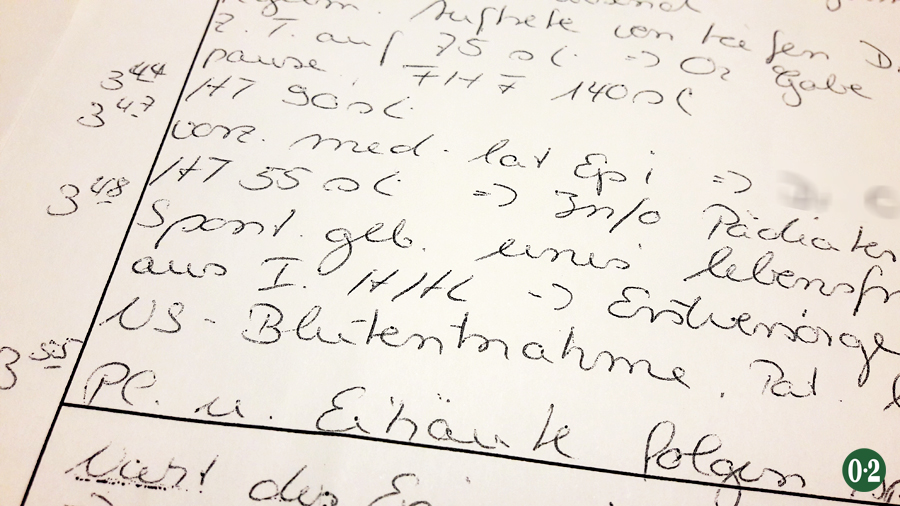 Auftrete von tiefen D
z.T. auf 75 sl. => O2 Gabe
pause. FHF 140 sl
3 44 HT 90 sl.
3 47 vorz. med. lat Epi =>
HT 55 sl. => Info Pädiater
3 48 Spont. geb. eines lebensfr
aus I. HHL -> Erstversorge
NS-Blutentnahme. Pat.
3 55 Pl. u. Eihäute folgen
Naht der Epi
0·2